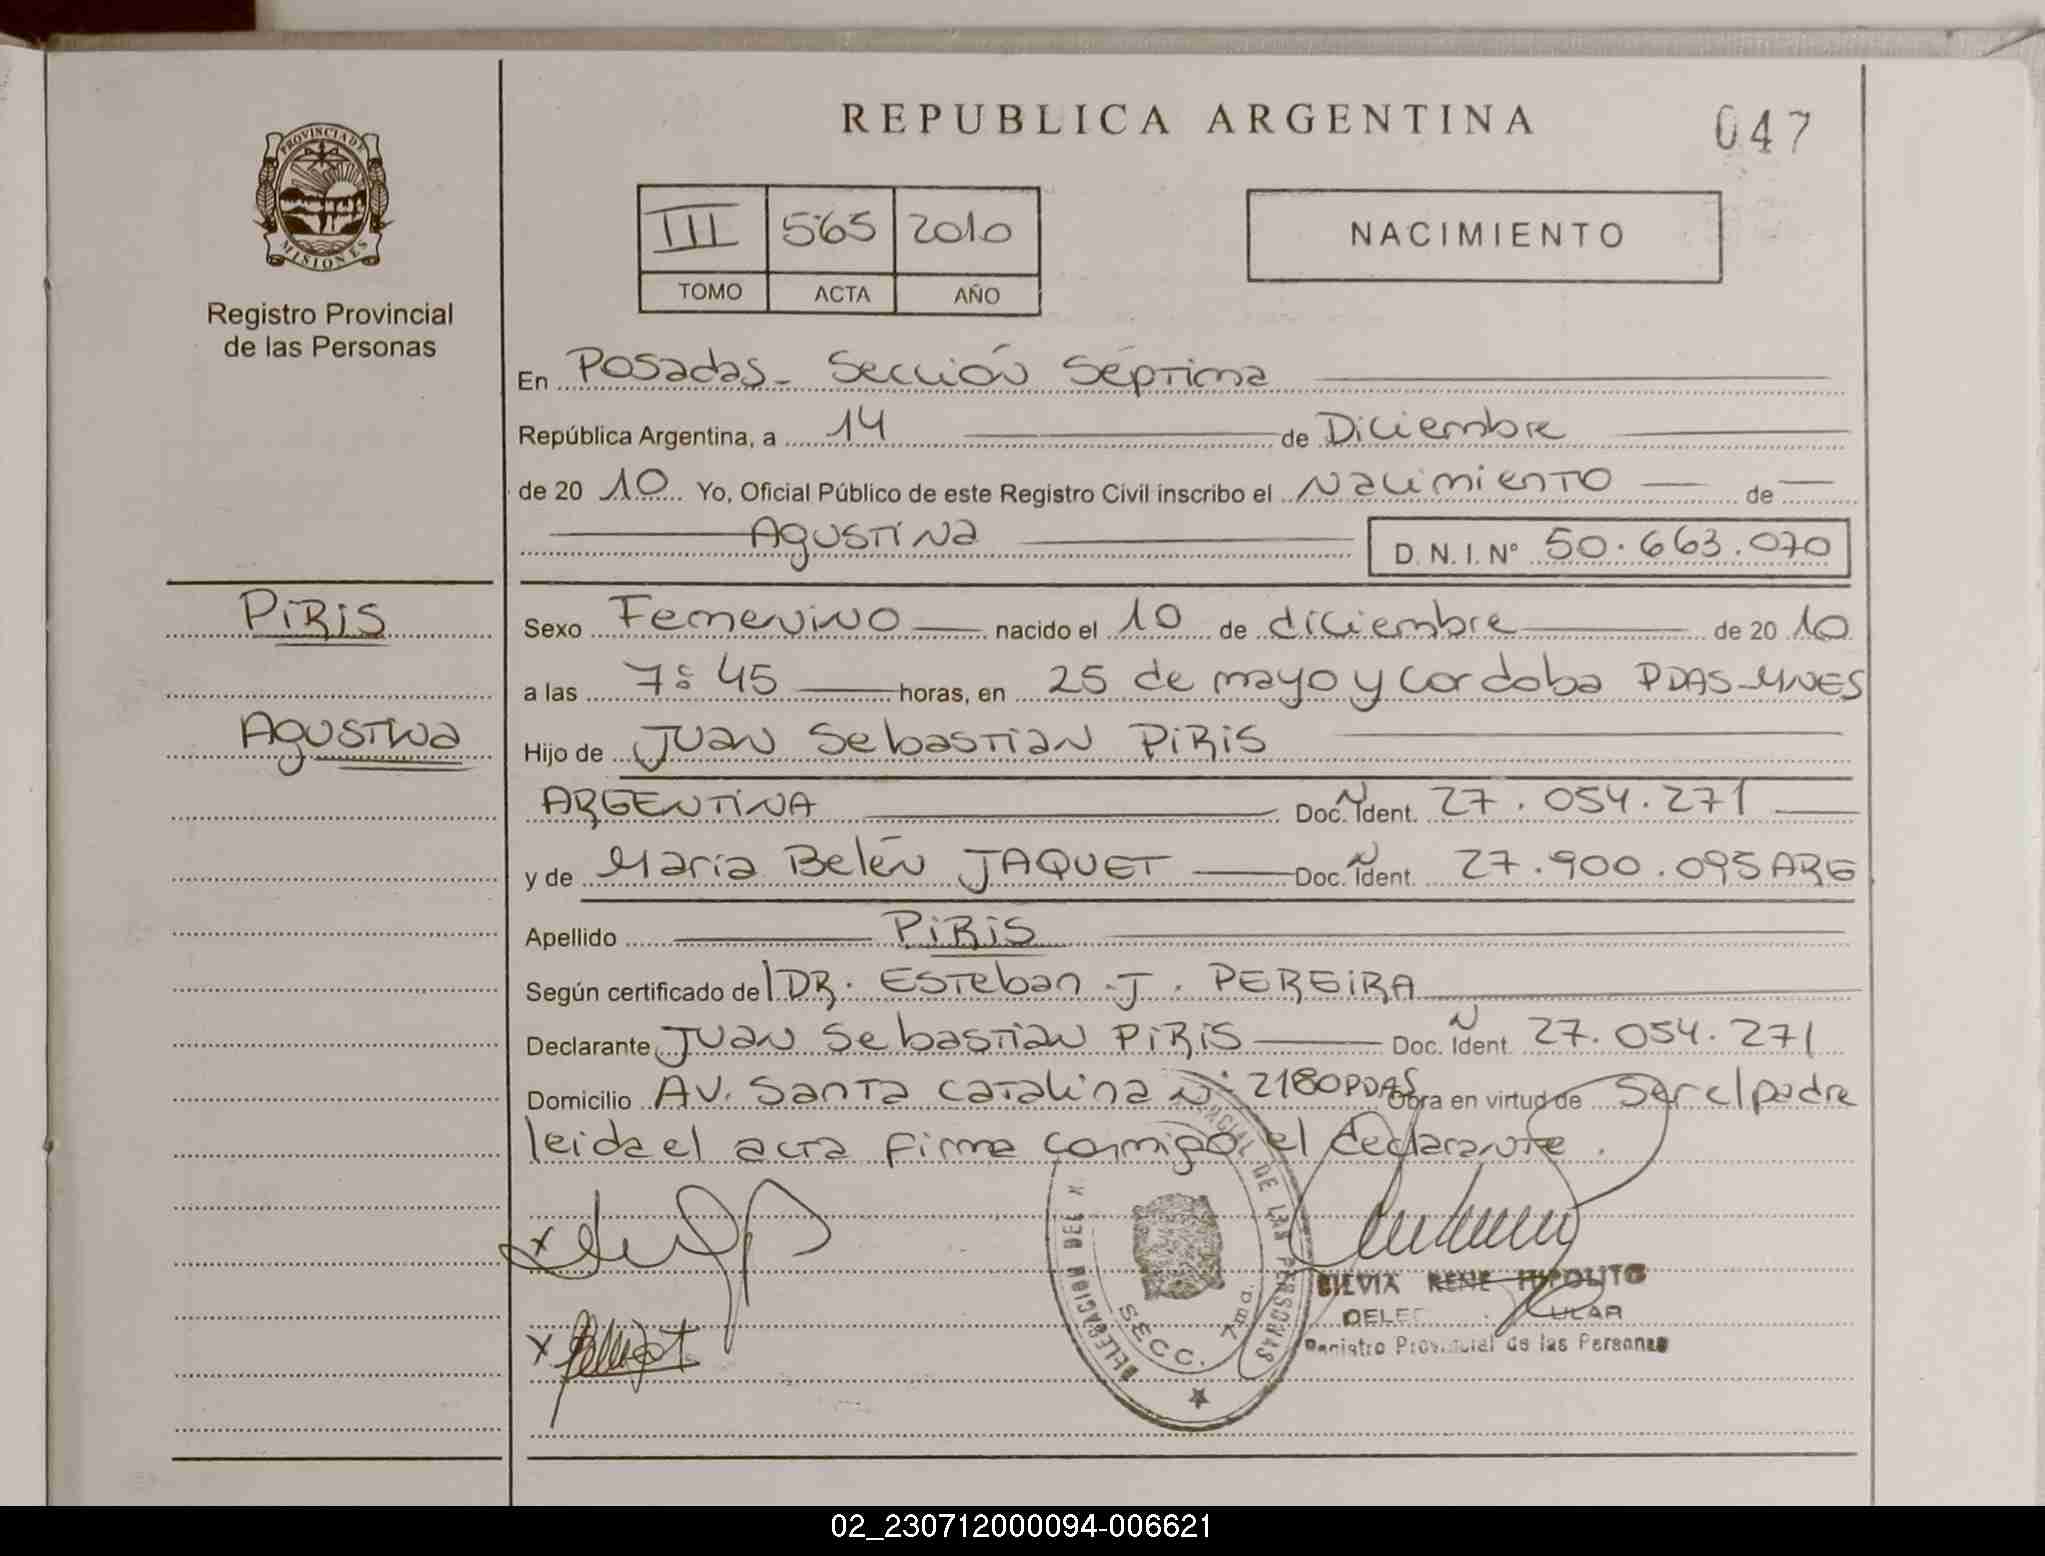 REPUBLICA ARGENTINA
047
PROVINCIA DE MISIONES
Registro Provincial
de las Personas
III 565 2010
TOMO ACTA AÑO
NACIMIENTO
En Posadas - Sección Séptima
República Argentina, a 14 de Diciembre
de 20 10 Yo, Oficial Público de este Registro Civil inscribo el Nacimiento de
Agustina D. N. I. N° 50.663.070
PIRIS
Agustina
Sexo Femenino nacido el 10 de diciembre de 20 10
a las 7:45 horas, en 25 de mayo y Cordoba PDAS-MNES
Hijo de Juan Sebastian PIRIS
ARGENTINA Doc. Ident. 27.054.271
y de Maria Belén JAQUET Doc. Ident. 27.900.095 ARG
Apellido PIRIS
Según certificado del DR. Esteban J. PEREIRA
Declarante Juan Sebastian PIRIS Doc. Ident. 27.054.271
Domicilio AV. Santa Catalina N° 2180 PDAS Obra en virtud de Ser el padre
leida el acta firma conmigo el declarante.
DELEGACION DEL DE LAS PERSONAS
SECC. 7ma.
SILVIA RENE HIPOLITO
Registro Provincial de las Personas
02_230712000094-006621